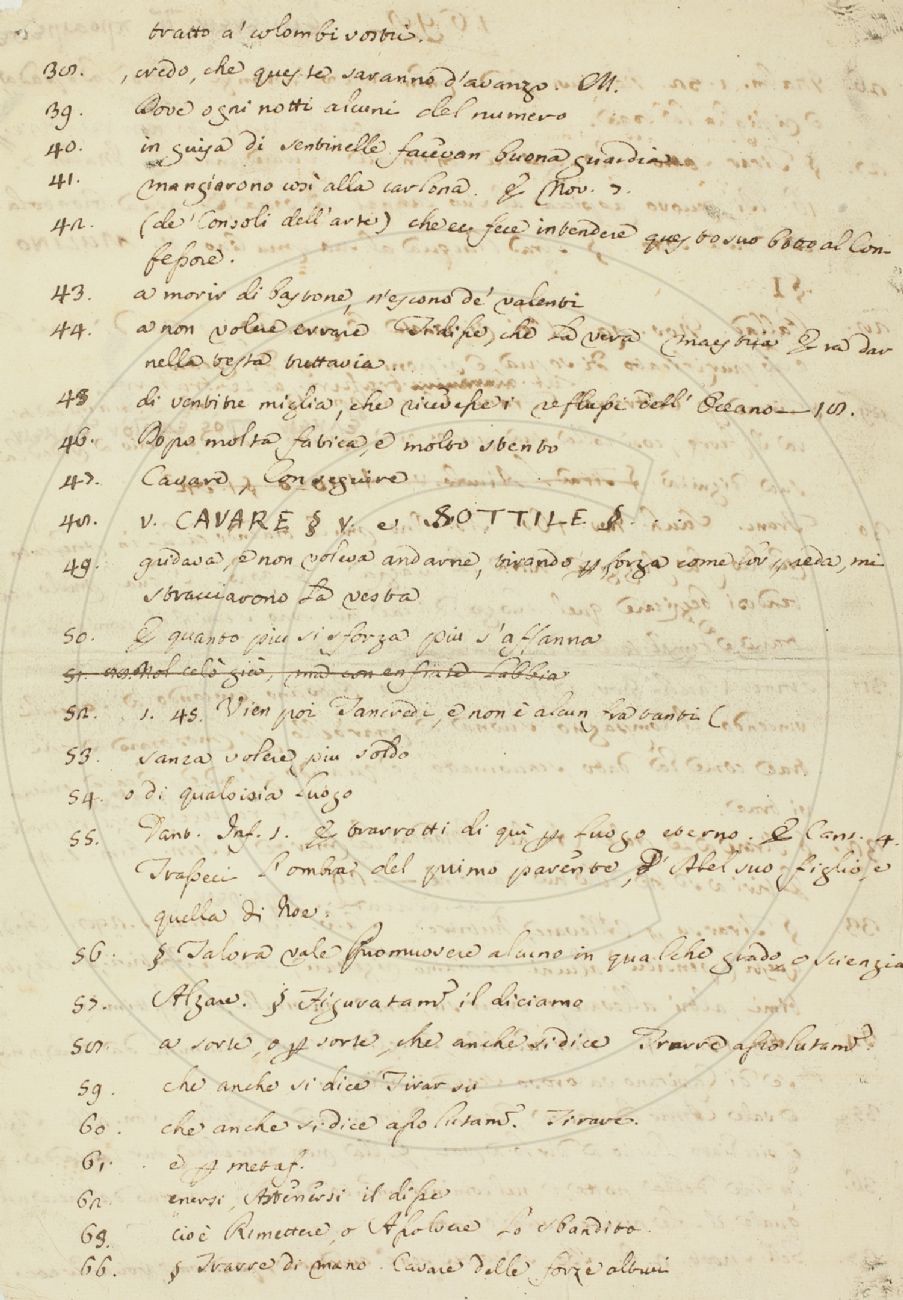 tratto a' colombi vostri.
38. , credo, che queste saranno d'avanzo M.
39. Dove ogni notti alcuni del numero
40. in guisa di sentinelle facevan buona guardia
41. mangiarono così alla carlona. E Nov. 7.
42. (de' Consoli dell'arte) che fece intendere questo suo al Con-
fessore.
43. a morir di bastone, n'escono de' valenti
44. a non volere errare disse, che la vera maestria Era dar
nella testa tuttavia
45 di ventitre miglia, che ricevesse i reflussi dell' Oceano — 18.
46. Dopo molta fatica, e molto stento
47. Cavare, Conseguire
48. v. CAVARE § V. e SOTTILE §.
49. gridava, e non voleva andarne, tirando p forza come lor preda, mi
stracciarono la vesta
50. E quanto piu si sforza piu s'affanna
51. Nol celò già, ma con enfiate Labbia
52. 1. 45. Vien poi Tancredi, e non è alcun fra tanti (
53. sanza volere piu soldo
54. o di qualsisia luogo
55. Dant. Inf. 1. E trarrotti di quì p Luogo eterno. E Cant. 4.
Trasseci l'ombra del primo parente, D' Abel suo figlio, e
quella di Noe.
56. § Talora vale Promuovere alcuno in qualche grado o scienzia
57. Alzare. § Figuratam.e il diciamo
58. a sorte, o p sorte, che anche si dice Trarre assolutam.e
59. che anche si dice Tirar su
60. che anche si dice assolutam.e Tirare.
61. ed p metaf.
62. enersi, Attenersi il disse
63. cioè Rimettere, o Assolvere lo sbandito.
66. § Trarre di mano. Cavare delle forze altrui